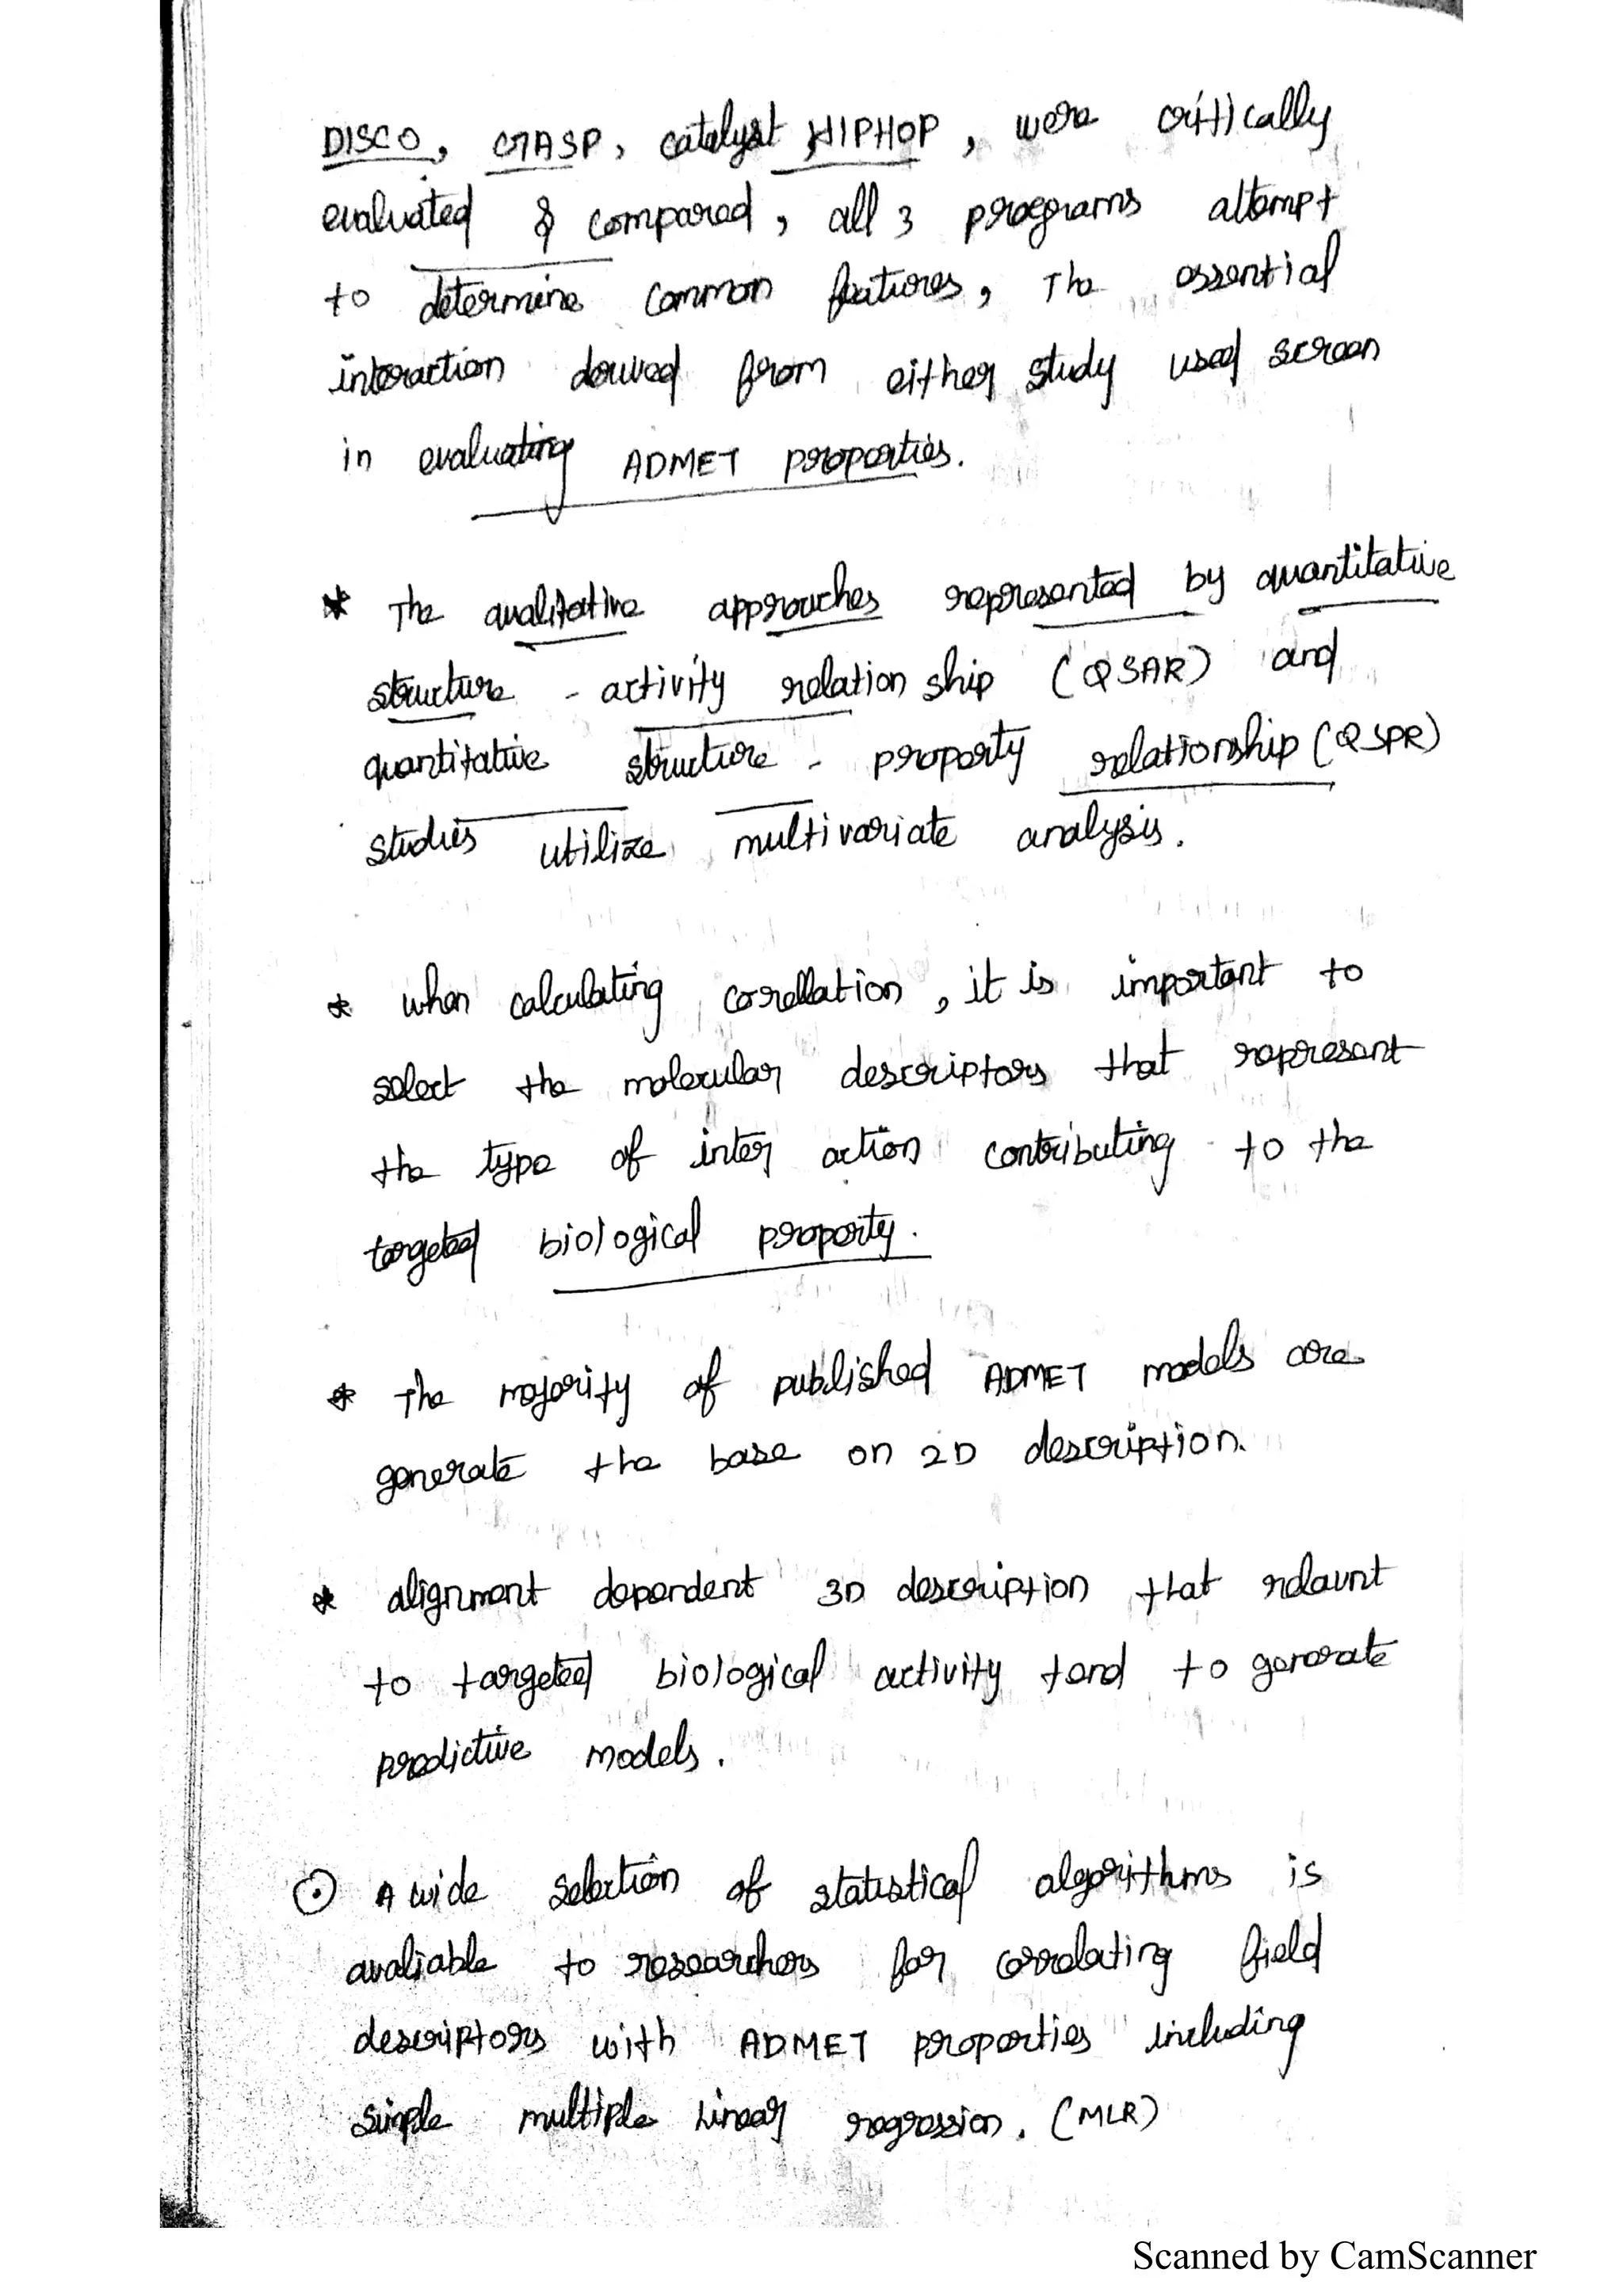 DISCO, GASP, catalyst HIPHOP, were critically
evaluated & compared, all 3 programs attempt
to determine common features, The essential
interaction derived from either study used screen
in evaluating ADMET properties.
* The qualitative approaches represented by quantitative
structure - activity relation ship (QSAR) and
quantitative structure - property relationship (QSPR)
studies utilize multivariate analysis.
* when calculating corellation, it is important to
select the molecular descriptors that represent
the type of inter action contributing to the
targeted biological property.
* The majority of published ADMET models are
generate the base on 2D description.
* alignment dependent 3D description that relavnt
to targeted biological activity tend to generate
predictive models.
⊙ A wide selection of statistical algorithms is
avaliable to researchers for correlating field
descriptors with ADMET properties including
simple multiple linear regression. (MLR)
Scanned by CamScanner